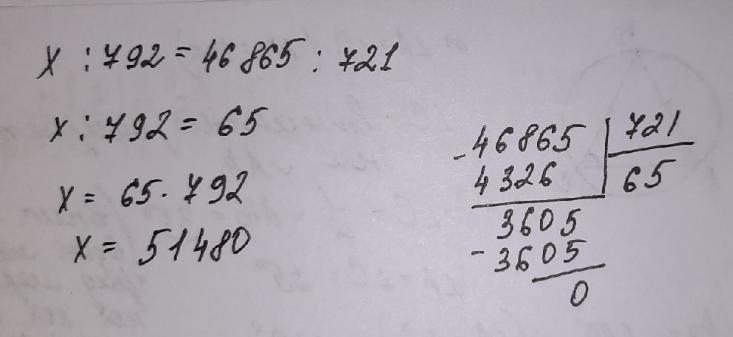 x : 792 = 46865 : 721
x : 792 = 65
x = 65 · 792
x = 51480
- 46865 | 721
4326 | 65
3605
- 3605
0